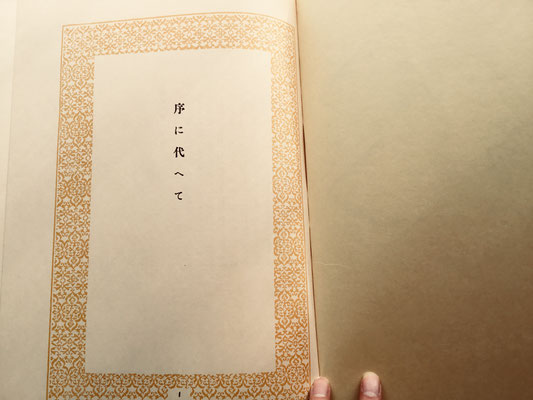 序に代へて